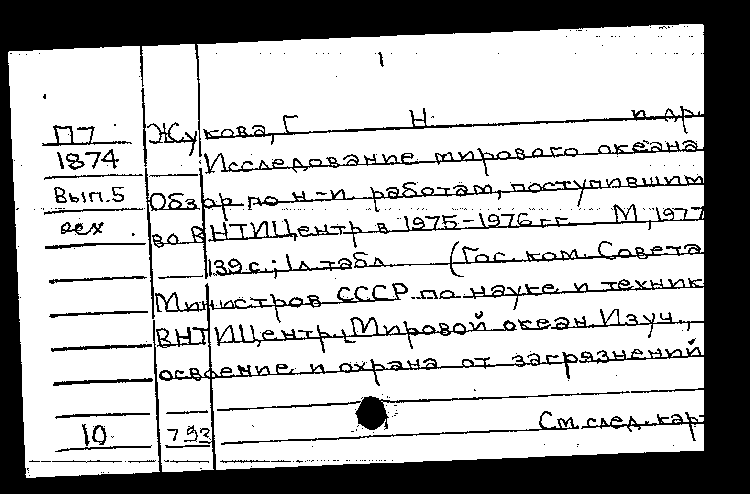 1
П7 Жукова, Г Н. и др.
1874 Исследование мирового океана
Вып.5 Обзор по н-и. работам, поступившим
во ВНТИЦентр в 1975-1976 гг. М, 1977
139 с.; 1л табл. (Гос. ком. Совета
Министров СССР по науке и техник
ВНТИЦентр, Мировой океан. Изуч.,
освоение и охрана от загрязнений
См. след. кар
10 793